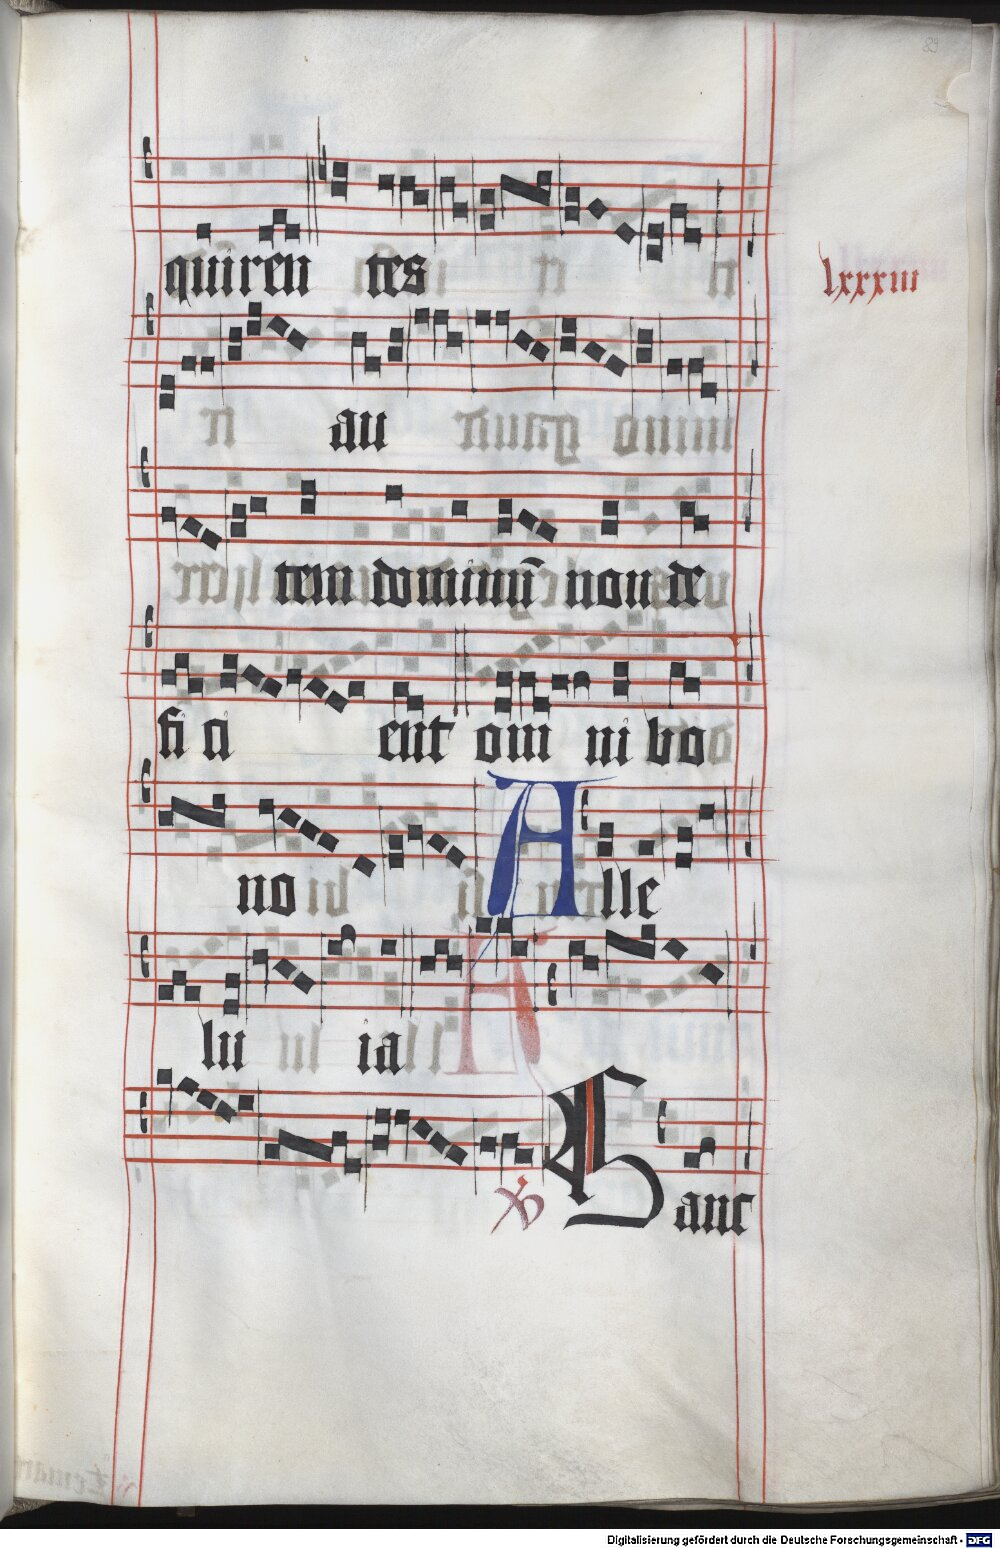 89
quiren tes
lxxxiii
au
tem dominū non de
fi ci ent om ni bo
no Alle
lu ia
℣ Sanc
Digitalisierung gefördert durch die Deutsche Forschungsgemeinschaft - DFG